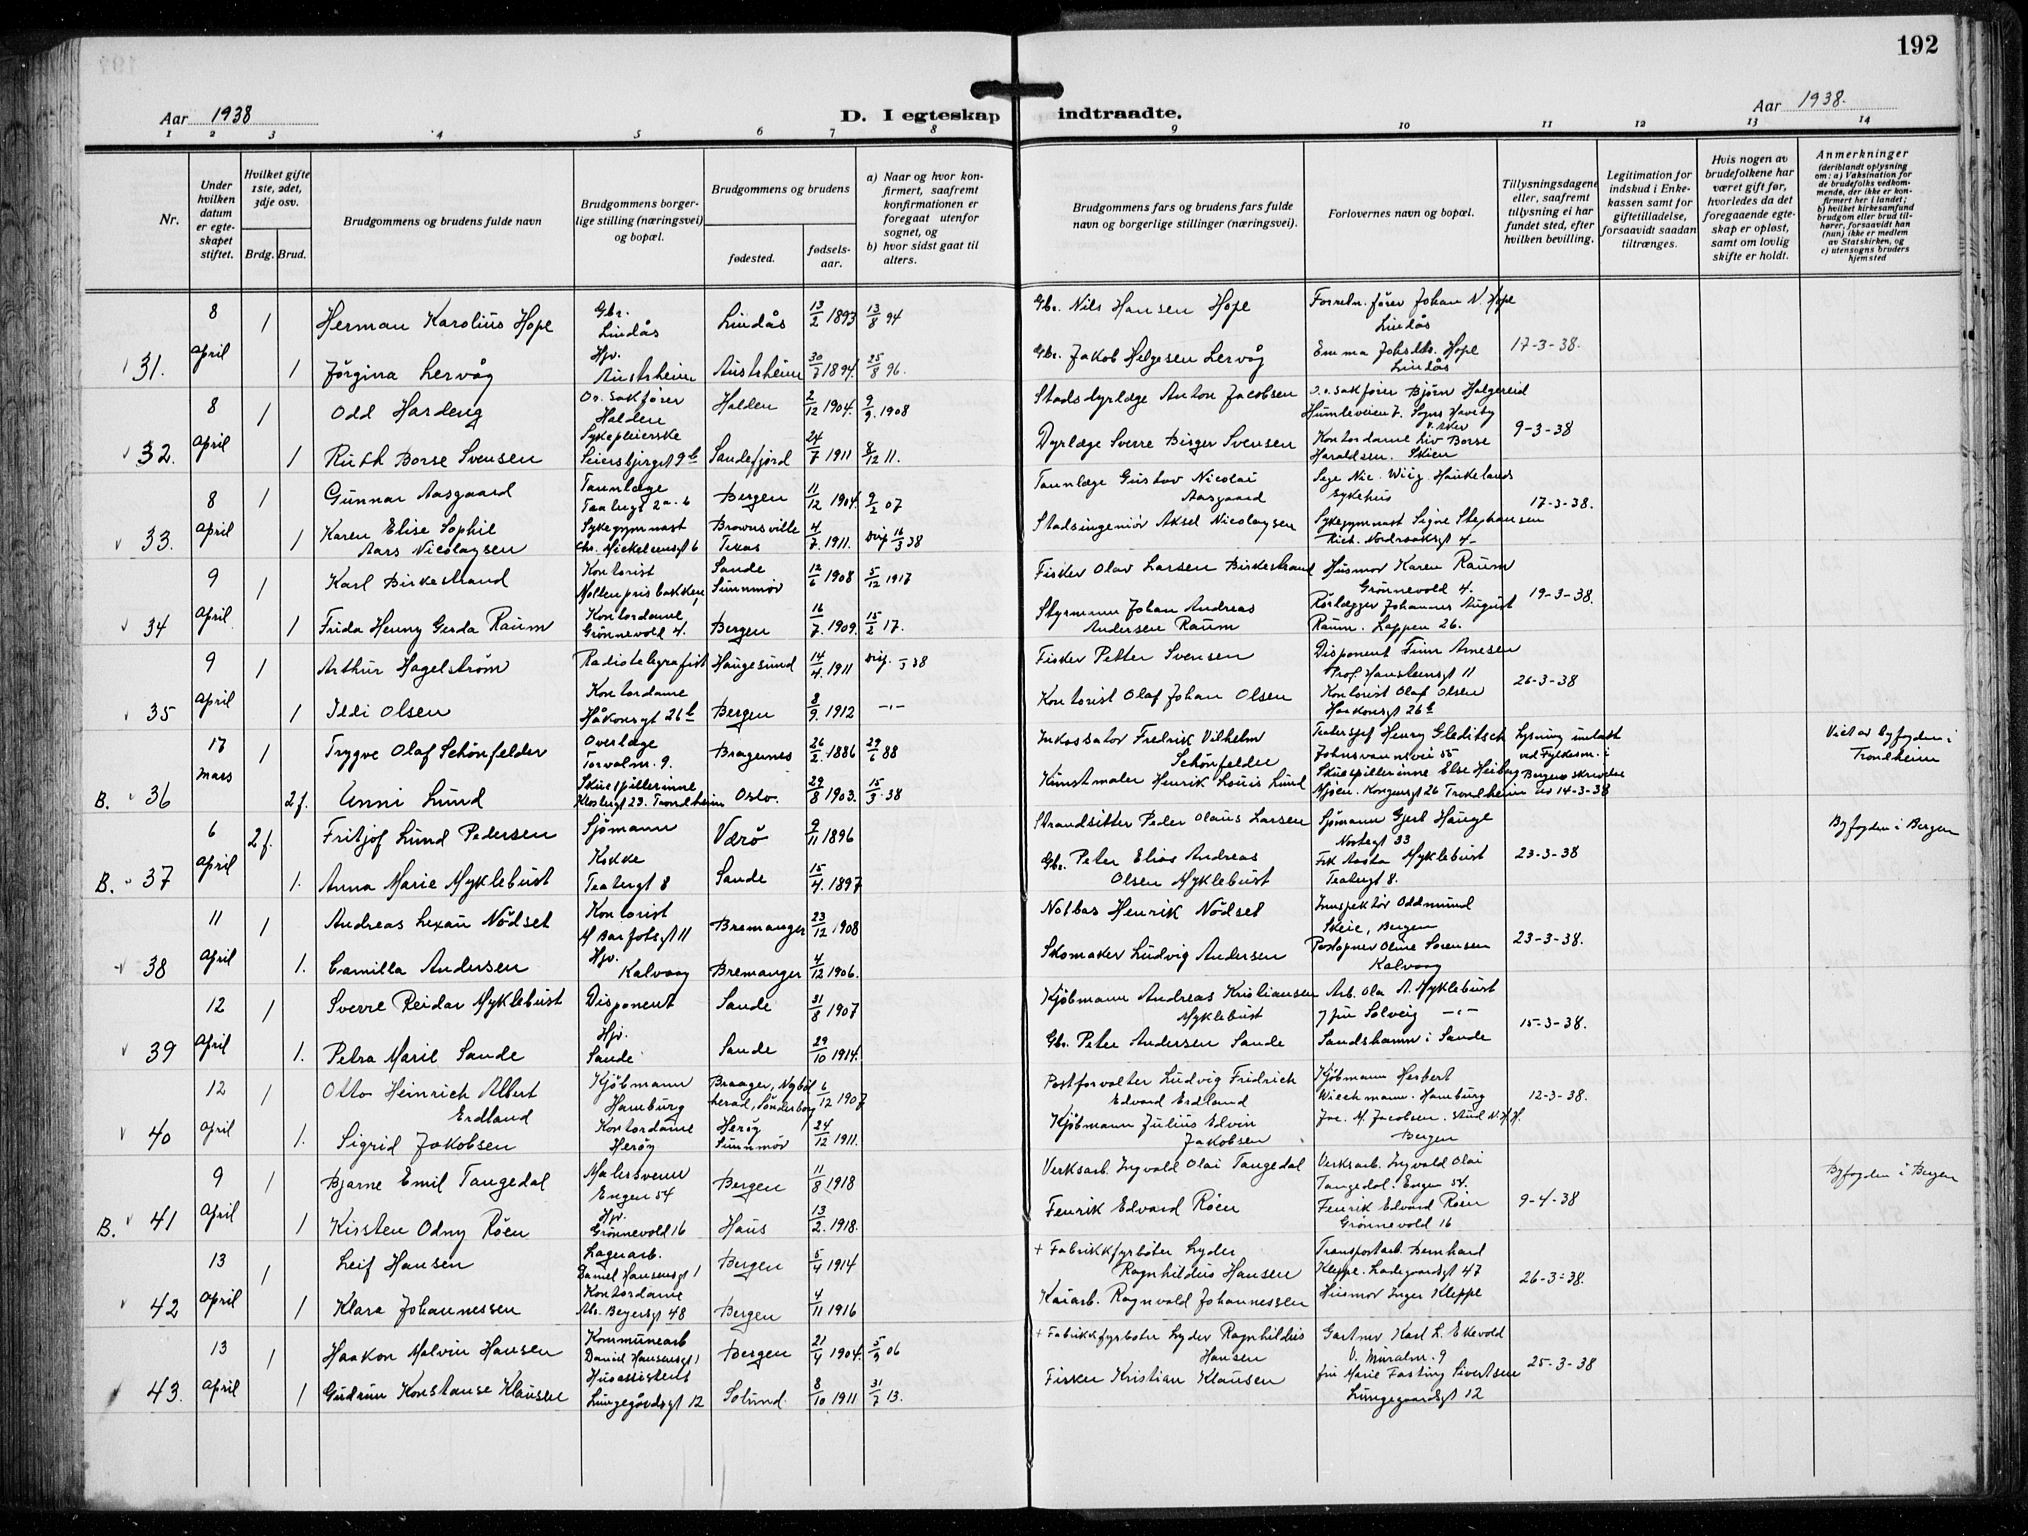 192
Aar 1938
D. I egteskap indtraadte.
Aar 1938.
1 2 3 4 5 6 7 8 9 10 11 12 13 14
Nr.
Under hvilken datum er egteskapet stiftet.
Hvilket gifte 1ste, 2det, 3dje osv.
Brdg. Brud.
Brudgommens og brudens fulde navn
Brudgommens borgerlige stilling (næringsvei) og bopæl.
Brudgommens og brudens
fødested.
fødselsaar.
a) Naar og hvor konfirmert, saafremt konfirmationen er foregaat utenfor sognet, og
b) hvor sidst gaat til alters.
Brudgommens fars og brudens fars fulde navn og borgerlige stillinger (næringsvei).
Forlovernes navn og bopæl.
Tillysningsdagene eller, saafremt tillysning ei har fundet sted, efter hvilken bevilling.
Legitimation for indskud i Enkekassen samt for giftetilladelse, forsaavidt saadan tiltrænges.
Hvis nogen av brudefolkene har været gift før, hvorledes da det foregaaende egteskap er opløst, samt om lovlig skifte er holdt.
Anmerkninger
(deriblandt oplysning om: a) Vaksination for de brudefolks vedkommende, der ikke er konfirmert her i landet; b) hvilket kirkesamfund brudgom eller brud tilhører, forsaavidt han (hun) ikke er medlem av Statskirken, og c) utensogns bruders hjemsted
31. 8 April
1 Herman Karolius Hope Gbr. Lindås Lindås 13/2 1893 13/8 94 Gbr. Nils Hansen Hope Johan N. Hope Lindås
1 Jørgina Lervåg Hjv. Austrheim Austrheim 30/7 1894. 25/8 96. Gbr. Jakob Helgesen Lervåg Emma Hope Lindås 17-3-38.
32. 8 April
1 Odd Hardeng O.r. sakfører Halden Halden 2/12 1904. 9/9. 1908 Stadsdyrlæge Anton Jacobsen O.r. sakfører Bjørn Halgereid Humleveien 7. v. Aker
1 Ruth Borse Svensen Sykepleierske Seiersbjerget 9b Sandefjord 24/7 1911 8/12 11. Dyrlæge Sverre Birger Svensen Kontordame Liv Borse Haraldsen. Skien 9-3-38
33. 8 April
1 Gunnar Aasgaard Tannlæge 2a. 6 Bergen 11/12 1904. 9/2 07 Tannlæge Gustav Nicolai Aasgaard Nic. Wiig. Haukelands sykehus
1 Karen Elise Sophie Aars Nicolaysen Sykegymnast Chr. Mickelsensgt 6 Brownsville Texas 4/7. 1911. 16/3 38 Stadsingeniør Aksel Nicolaysen Sykegymnast Signe Stephansen Rich. Nordraaksgt 4- 17-3-38.
34 9 April
1 Karl Birkestrand Kontorist Nøllenprisbakken Sande Sunnmør 12/6 1908 5/12 1917 Fisker Olav Larsen Birkestrand Husmor Karen Raum Grønnevold 4.
1 Frida Henny Gerda Raum Kontordame Grønnevold 4. Bergen 16/7. 1909. 15/2 17. Styrmann Johan Andreas Andersen Raum Rørlægger Johannes August Raum. Lappen 26. 19-3-38.
35 9 April
1 Arthur Hagelstrøm Radiotelegrafist Haugesund 14/4. 1911 38 Fisker Petter Svensen Disponent Finn Arnesen Prof. Hansteensgt 11
1 Ildi Olsen Kontordame Håkonsgt 26b Bergen 8/9. 1912 -"- Kontorist Olaf Johan Olsen Kontorist Olaf Olsen Haakonsgt 26b 26-3-38
B. 36 17 Mars
1 Trygve Olaf Schönfelder Overlæge Torvalm. 9. Bragernes 26/2. 1886 29/6 88 Inkassator Fredrik Vilhelm Schönfelder Teatersjef Henry Gleditsch Johnsvannsvei 55
2 f. Anni Lund Skuespillerinne Klostergt 23. Trondheim Oslo. 29/8 1903. 15/3. 38 Kunstmaler Henrik Louis Lund Skuespillerinne Else Heiberg Mjøen. Kongensgt 26 Trondheim
Lysning innlatt ved Fylkesm. i Bergens skrivelse av 14-3-38
Viet av byfogden i Trondheim
B. 37 6 April
2 f. Fritjof Lund Pedersen Sjømann Værø 9/11 1896 Strandsitter Peder Olaus Larsen Sjømann Gjert Hauge Nostegt 33
1. Anna Marie Myklebust Kokke Teatergt 8 Sande 15/4. 1897 Gbr. Peter Elias Andreas Olsen Myklebust Frk Aasta Myklebust Teatergt 8. 23-3-38
Byfogden i Bergen
38 11 April
1 Andreas Lexau Nødset Kontorist M Barfotsgt 11 Bremanger 23/12 1908 Notbas Henrik Nødset Innspektør Oddmund Skeie, Bergen
1. Camilla Andersen Hjv. Kalvaag Bremanger 4/12 1906. Skomaker Ludvig Andersen Postopner Oline Sørensen Kalvaag 23-3-38.
39 12 April
1 Sverre Reidar Myklebust Disponent Sande 31/8 1907 Kjøbmann Andreas Kristiansen Myklebust Arb. Ola A. Myklebust
1. Petra Marie Sande Hjv. Sande Sande 29/10 1914. Gbr. Peter Andersen Sande fru Solveig -"- Sandshamn i Sande 15-3-38.
40 12 April
1 Otto Heinrich Albert Erdland Kjøbmann Hamburg Braager, Nybøl herad, Sønderborg 6/12 1907 Postforvalter Ludvig Fridrich Edvard Erdland Kjøbmann Herbert Wiechmann. Hamburg
1. Sigrid Jakobsen Kontordame Herøy Herøy Sunnmør 24/12 1911. Kjøbmann Julius Edvin Jakobsen M. Jacobsen. stud N.H.H. Bergen 12-3-38.
B. 41 9 April
1 Bjarne Emil Tangedal Malersvenn Engen 54 Bergen 11/8 1918 Verksarb. Ingvald Olai Tangedal Verksarb. Ingvald Olai Tangedal. Engen 54.
1 Kirsten Odny Røen Hjv. Grønnevold 16 Haus 13/2. 1918. Fenrik Edvard Røen Fenrik Edvard Røen Grønnevold 16 9-4-38
Byfogden i Bergen
42 13 April
1 Leif Hansen Lagerarb. Daniel Hansensgt 1 Bergen 5/4 1914 + Fabrikkfyrbøter Lyder Ragnhildius Hansen Transportarb. Bernhard Kleppe. Ladegaardsgt 47
1 Klara Johannessen Kontordame Abs. Beyersgt 48 Bergen 4/11 1916 Kaiarb. Ragnvald Johannessen Husmor Inger Kleppe 26-3-38.
43. 13 April
1 Haakon Malvin Hansen Kommunearb Daniel Hansensgt 1 Bergen 21/4 1904. 5/9 06 + Fabrikkfyrbøter Lyder Ragnhildius Hansen Gartner Karl L. Ekevold V. Muralm. 9
1 Gudrun Konstanse Klausen Husassistent Lungegårdsgt 12 Solund. 8/10 1911 31/7 13. Fisker Kristian Klausen fru Marie Fasting Sivertsen Lungegaardsgt 12 25-3-38